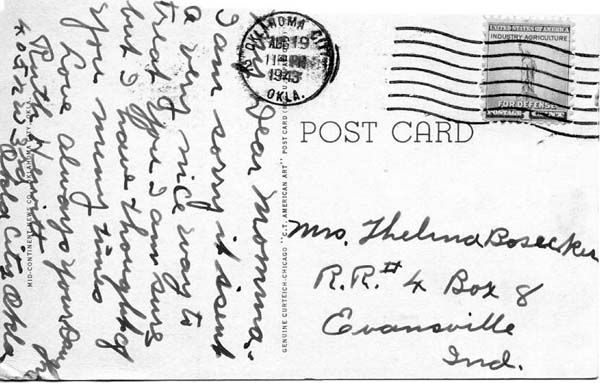 My Dear Momma,-
I am sorry it isent
a very nice way to
treat you I am sure
but I have thought of
you many times
Love always your
Ruth
Okla City Okla
MID-CONTINENT NEWS CO., OKLAHOMA CITY
GENUINE CURTEICH-CHICAGO "C.T. AMERICAN ART" POST CARD
OKLAHOMA CITY
AUG 19
1943
OKLA.
UNITED STATES OF AMERICA
INDUSTRY AGRICULTURE
FOR DEFENSE
POSTAGE 1 CENT
POST CARD
Mrs. Thelma Bosecker
R.R.# 4 Box 8
Evansville
Ind.